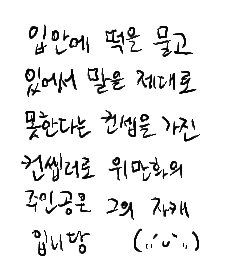 입안에 떡을 물고
있어서 말을 제대로
못한다는 컨셉을 가진
컨씹러로 위만화의
주인공은 그의 자캐
입니당 (,,´ᴗ`,,)